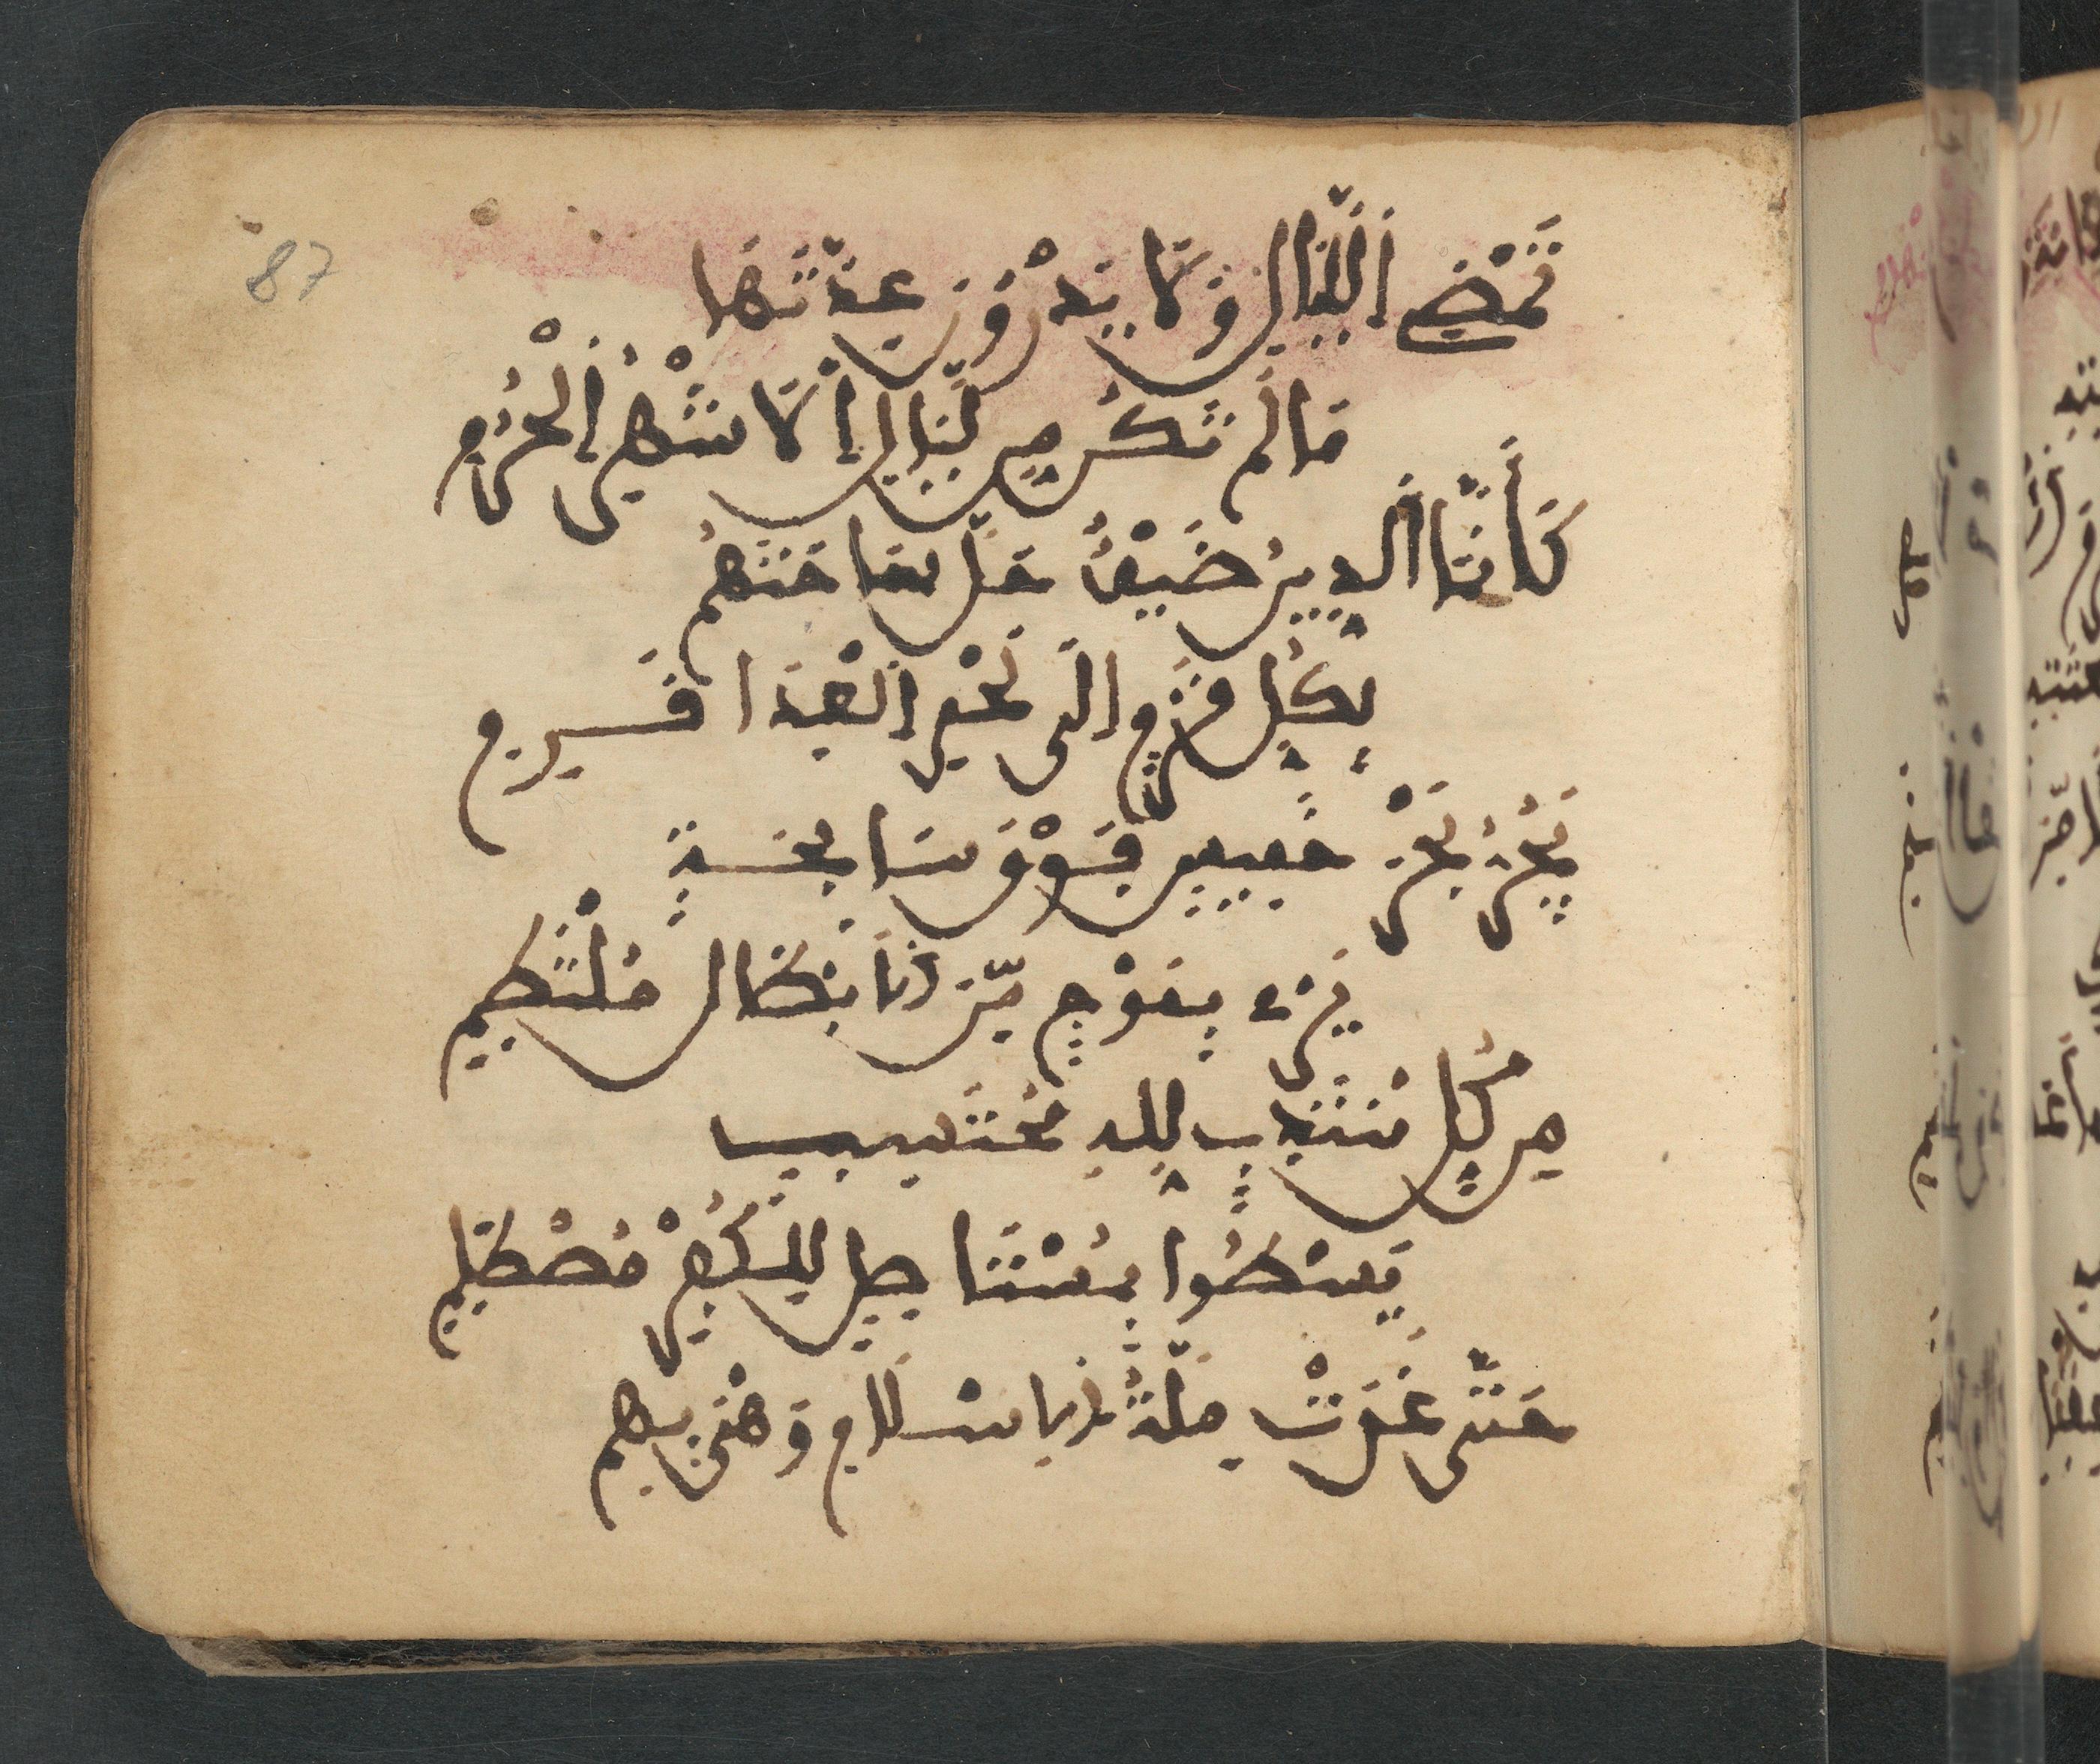 87
تَمْضِي اَللَّيَالِ وَلَا يَدْرُونَ عِدَّتَهَا
مَا لَمْ تَكُن مِن لَّيَالِي اِلَاشْهُرِ اِلْحُرُمِ
كَأَنَّمَا اَلدِّينُ ضَيْفٌ حَلَّ سَاحَتَهُمْ
بِكُلِّ قَرْمٍ اِلَى لَحْمِ اِلْعِدَا قَرِمِ
يَجُرُّ بَحْرَ خَمِيسٍ فَوْقَ سَابِحَةٍ
يَرْمِي بِمَوْجٍ مِّنَ اَلَابْطَالِ مُلْتَطِمِ
مِن كُلِّ مُنْتَدِبٍ لِلهِ مُحْتَسِبٍ
يَسْطُوا بِمُسْتَاصِلٍ لِلْكُفْرِ مُصْطَلِمِ
حَتَّى غَدَتْ مِلَّةُ اَلِاسْلَامِ وَهْيَ بِهِم